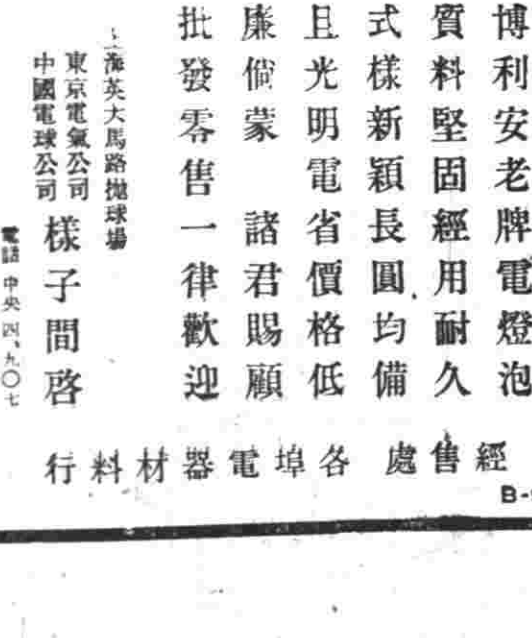 博利安老牌電燈泡
質料堅固經用耐久
式樣新穎長圓均備
且光明電省價格低
廉倘蒙　諸君賜顧
批發零售一律歡迎
上海英大馬路拋球場
東京電氣公司
中國電球公司
樣子間啓
電話 中央 四、九〇七
經售處 各埠電器材料行
B-